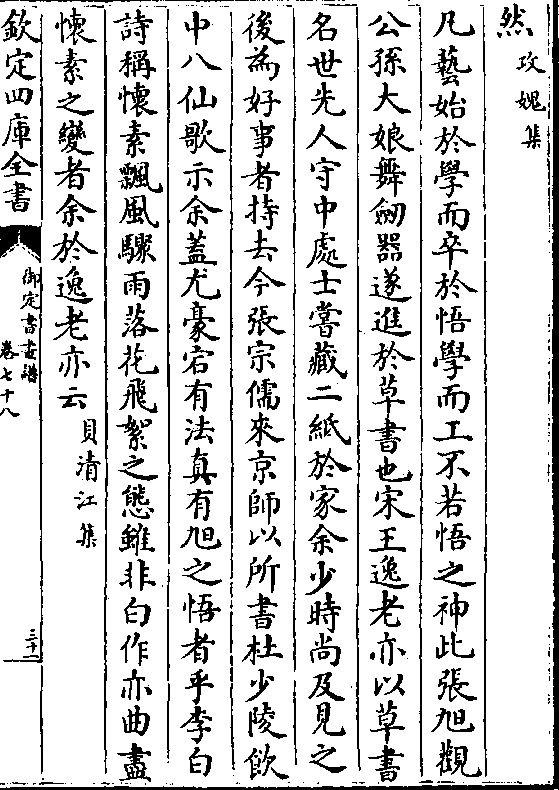 然攻媿集
凡藝始於學而卒於悟學而工不若悟之神此張旭觀
公孫大娘舞劒器遂進於草書也宋王逸老亦以草書
名世先人守中處士嘗藏二紙於家余少時尚及見之
後為好事者持去今張宗儒來京師以所書杜少陵飲
中八仙歌示余蓋尤豪宕有法真有旭之悟者乎李白
詩稱懷素飄風驟雨落花飛絮之態雖非白作亦曲盡
懷素之變者余於逸老亦云貝清江集
欽定四庫全書
御定書畫譜
卷七十八
三十